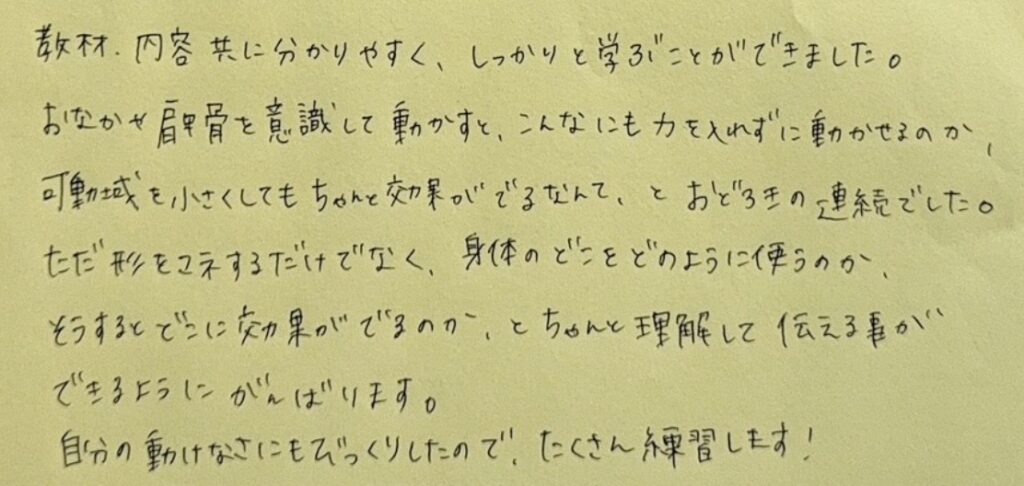 教材、内容共に分かりやすく、しっかりと学ぶことができました。
おなかや肩甲骨を意識して動かすと、こんなにも力を入れずに動かせるのか、
可動域を小さくしてもちゃんと効果がでるなんて、とおどろきの連続でした。
ただ形をマネするだけでなく、身体のどこをどのように使うのか、
そうするとどこに効果がでるのか、とちゃんと理解して伝える事が
できるようにがんばります。
自分の動けなさにもびっくりしたので、たくさん練習します！